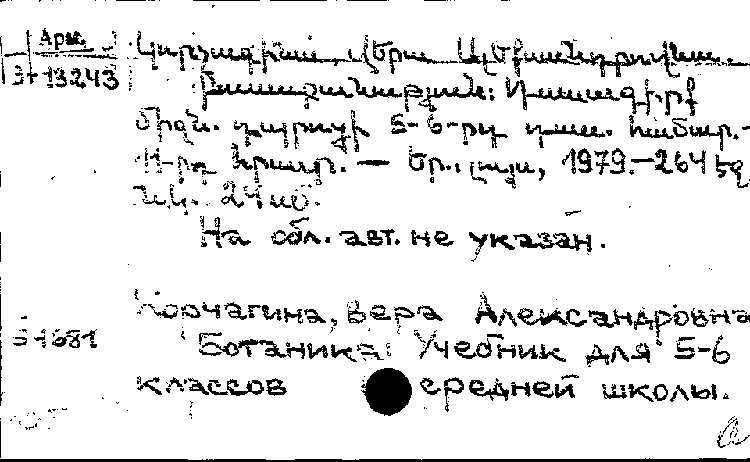 Арм.
Э+13243
Կորչագինա, Վերա Ալեքսանդրովնա.
Բուսաբանություն: Դասագիրք
միջն. դպրոցի 5-6-րդ դաս. համար.-
11-րդ հրատ. — Եր., Լույս, 1979.-264 էջ,
նկ. 24 սմ.
На обл. авт. не указан.
Корчагина, Вера Александровна
1681
Ботаника: Учебник для 5-6
классов средней школы.